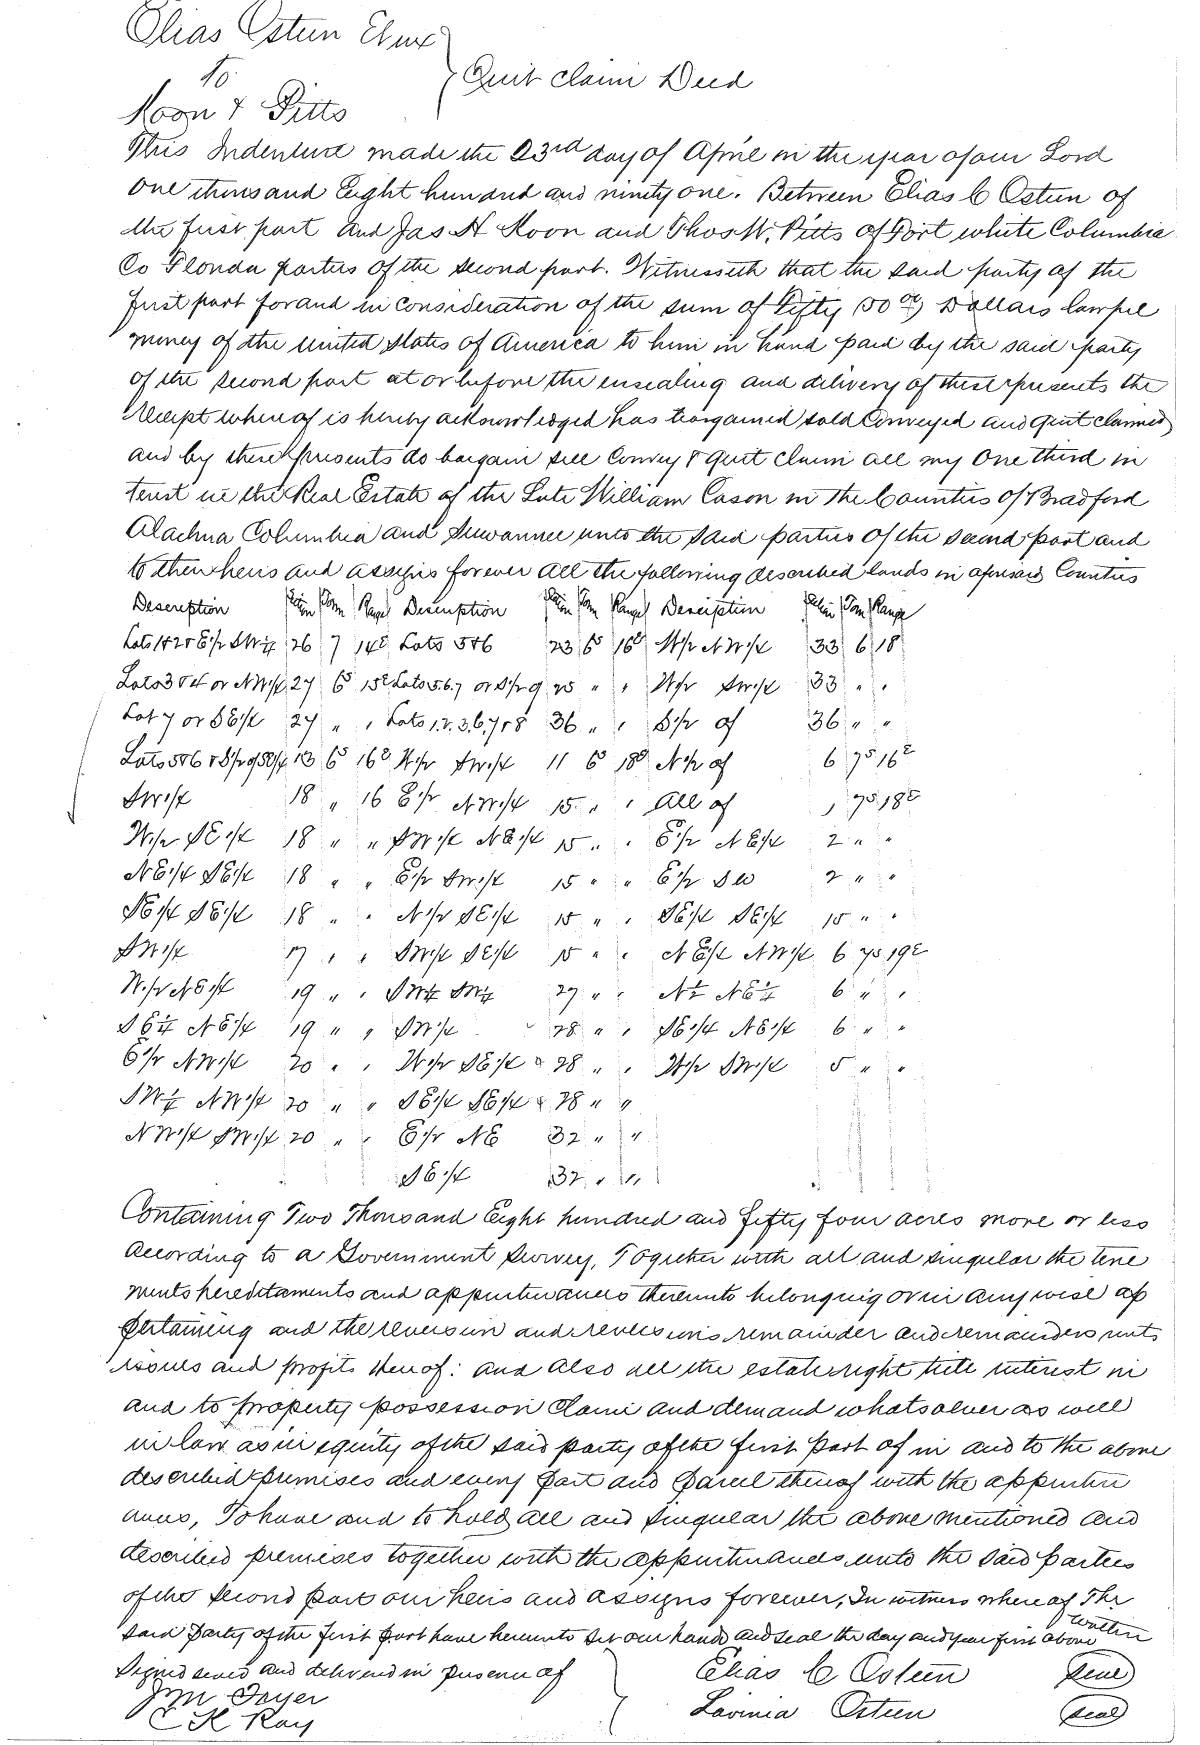 Elias Osteen Et ux
To
Quit Claim Deed
Moon & Pitts
This Indenture made the 23rd day of April in the year of our Lord
one thousand Eight hundred and ninety one. Between Elias C Osteen of
the first part and Jas H Moon and Thos W. Pitts of Fort white Columbia
Co Florida parties of the second part. Witnesseth that the said party of the
first part for and in consideration of the sum of Fifty (50 00) Dollars lawful
money of the united States of America to him in hand paid by the said party
of the second part at or before the ensealing and delivery of these presents the
receipt where of is hereby acknowledged has bargained sold conveyed and quit claimed
and by these presents do bargain sell convey & quit claim all my one third in
terest in the Real Estate of the Late William Cason in the Counties of Bradford
Alachua Columbia and Suwannee unto the said parties of the second part and
to their heirs and assigns forever all the following described lands in aforesaid Counties
Description Town Range Description Town Range Description Town Range
Lots 1&2 & E1/2 SW1/4 26 7 14E Lots 5&6 23 6S 16E W1/2 NW1/4 33 6 18
Lots 3&4 or NW1/4 27 6S 15E Lots 5.6.7 or S1/2 of 25 " " W1/2 SW1/4 33 " "
Lot 7 or SE1/4 27 " " Lots 1.2.3.6.7&8 36 " " S1/2 of 36 " "
Lots 5&6 & S1/2 of SE1/4 13 6S 16E W1/2 SW1/4 11 6 18E N1/2 of 6 7S 16E
SW1/4 18 " 16 E1/2 NW1/4 15 " " All of 1 7S 18E
W1/2 SE1/4 18 " " SW1/4 NE1/4 15 " " E1/2 NE1/4 2 " "
NE1/4 SE1/4 18 " " E1/2 SW1/4 15 " " E1/2 SW 2 " "
SE1/4 SE1/4 18 " " N1/2 SE1/4 15 " " SE1/4 SE1/4 15 " "
SW1/4 17 " " SW1/4 SE1/4 15 " " NE1/4 NW1/4 6 7S 19E
W1/2 NE1/4 19 " " SW1/4 SW1/4 27 " " N1/2 NE1/4 6 " "
SE1/4 NE1/4 19 " " SW1/4 28 " " SE1/4 NE1/4 6 " "
E1/2 NW1/4 20 " " W1/2 SE1/4 & 28 " " W1/2 SW1/4 5 " "
SW1/4 NW1/4 20 " " SE1/4 SE1/4 & 28 " "
NW1/4 SW1/4 20 " " E1/2 NE 32 " "
SE1/4 32 " "
Containing Two Thousand Eight hundred and fifty four acres more or less
according to a Government Survey, Together with all and singular the tene
ments hereditaments and appurtenances thereunto belonging or in any wise ap
pertaining and the reversion and reversions remainder and remainders rents
issues and profits thereof: and also all the estate right title interest in
and to property possession Claim and demand whatsoever as well
in law as in equity of the said party of the first part of in and to the above
described premises and every part and parcel thereof with the appurten
ances, To have and to hold all and singular the above mentioned and
described premises together with the appurtenances unto the said parties
of the second part our heirs and assigns forever, In witness where of The
said party of the first part have hereunto set our hands and seal the day and year first above written
Signed sealed and delivered in presence of
Elias C Osteen seal
C K Ray
Lavinia Osteen seal